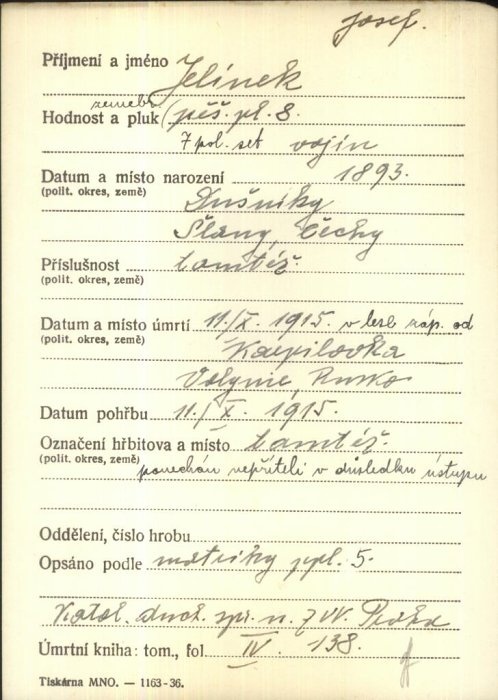 Josef.
Příjmení a jméno Jelínek
zeměbr.
Hodnost a pluk (pěš. pl. 8.
7 pol. set vojín
Datum a místo narození 1893.
(polit. okres, země) Dušníky
Slaný, Čechy
Příslušnost tamtéž.
(polit. okres, země)
Datum a místo úmrtí 11./X. 1915. v lese záp. od
(polit. okres, země) Karpilovka
Volyně, Rusko
Datum pohřbu 11./X. 1915.
Označení hřbitova a místo tamtéž.
(polit. okres, země) ponechán nepříteli v důsledku ústupu
Oddělení, číslo hrobu
Opsáno podle matriky ppl. 5.
Katol. duch. spr. n. 7 VV. Praha
Úmrtní kniha: tom., fol. IV. 138.
Tiskárna MNO. — 1163-36.